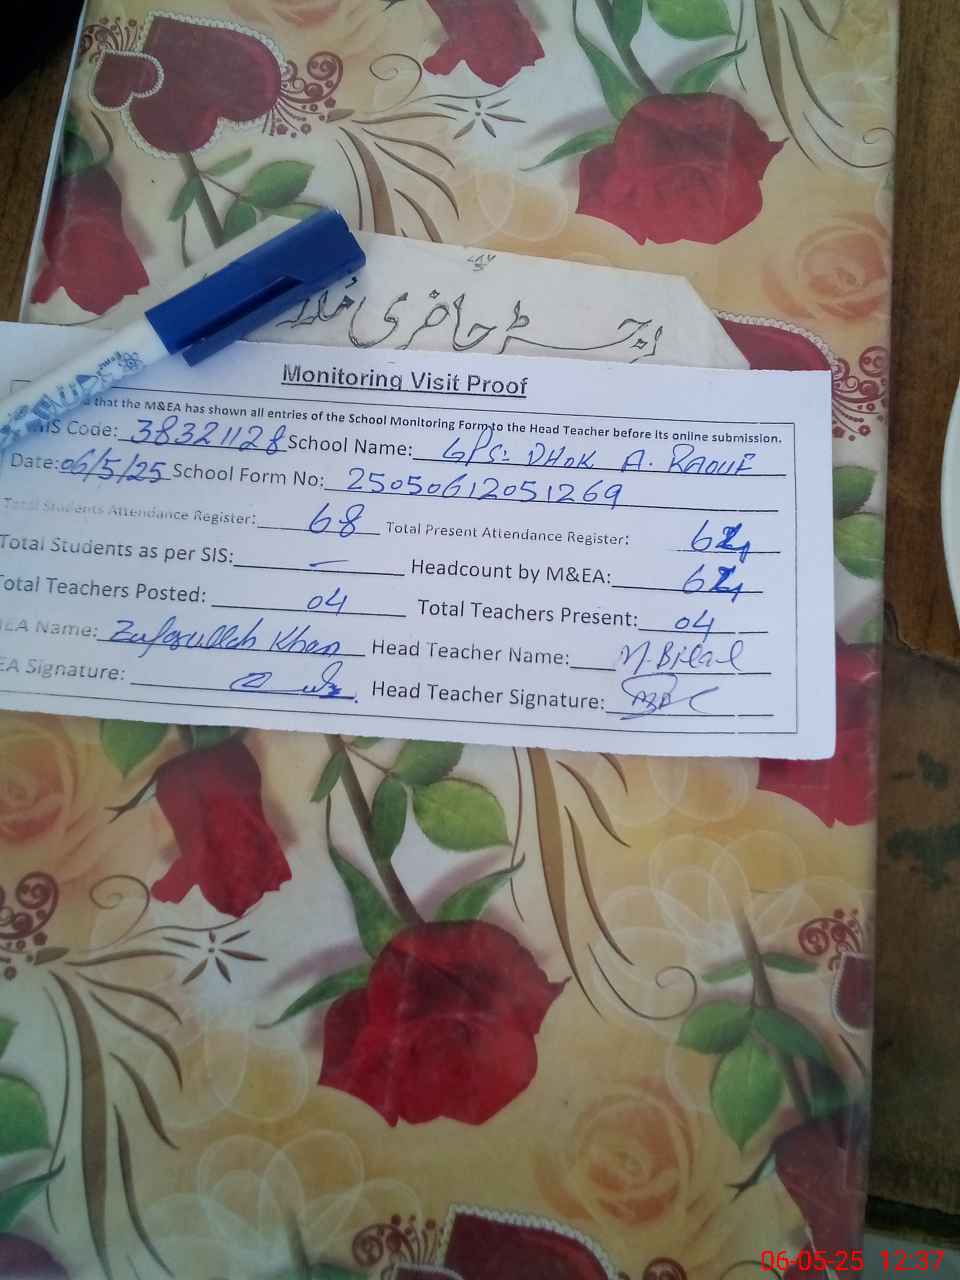 ۷۸۶
رجسٹر حاضری
Monitoring Visit Proof
that the M&EA has shown all entries of the School Monitoring Form to the Head Teacher before its online submission.
Code: 38321128 School Name: GPS: DHOK A. RAOUF
Date: 06/5/25 School Form No: 25050612051269
Total Students Attendance Register: 68 Total Present Attendance Register: 64
Total Students as per SIS: — Headcount by M&EA: 64
Total Teachers Posted: 04 Total Teachers Present: 04
Name: Zafarullah Khan Head Teacher Name: M. Bilal
EA Signature: Head Teacher Signature:
06-05-25 12:37